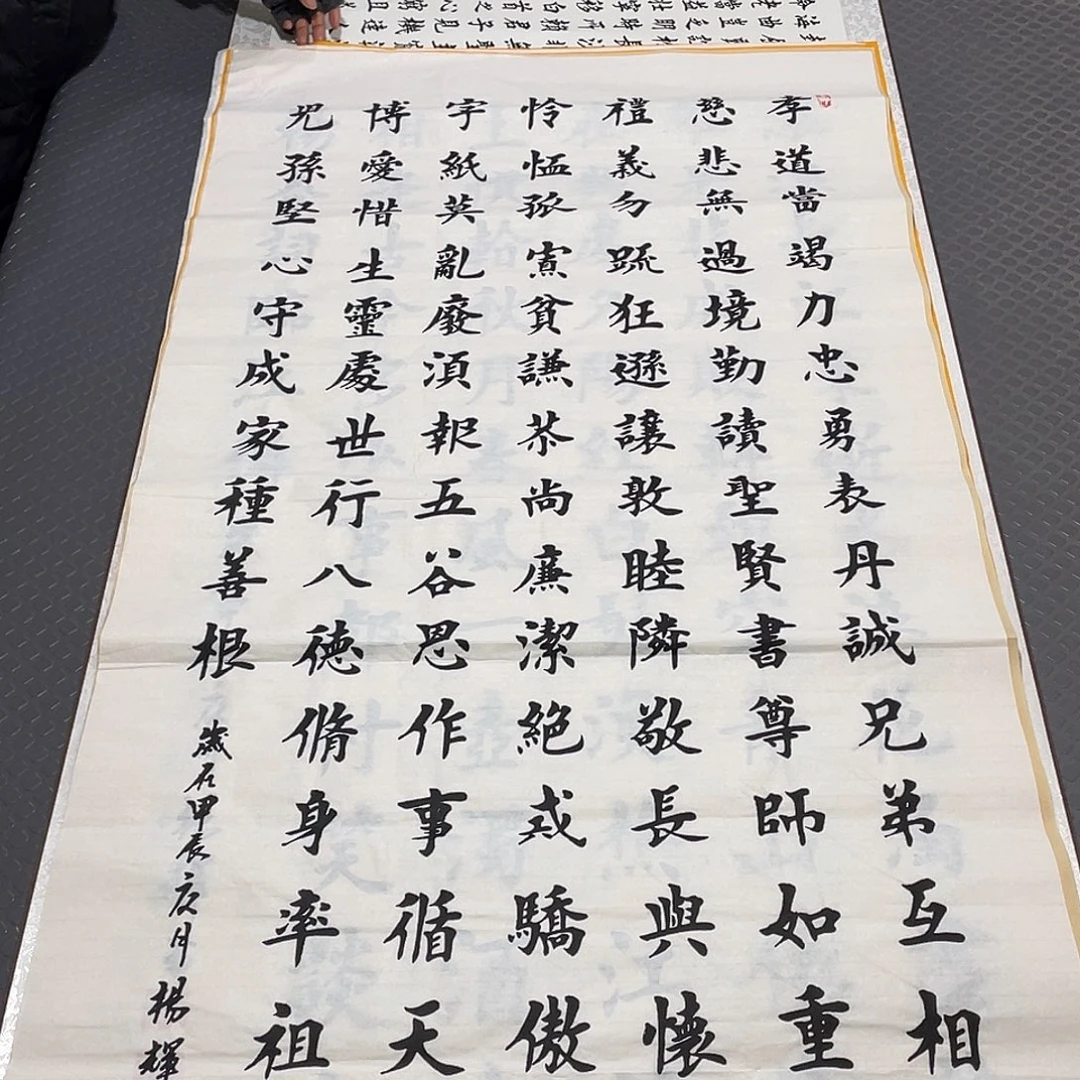 孝道當竭力忠勇表丹誠兄弟互相
慈悲無過境勤讀聖賢書尊師如重
禮義勿疏狂遜讓敦睦隣敬長與懷
怜恤孤寡貧謙恭尚廉潔絕戒驕傲
字紙莫亂廢須報五谷恩作事循天
博愛惜生靈處世行八德脩身率祖
兒孫堅心守成家種善根
歲在甲辰月楊輝